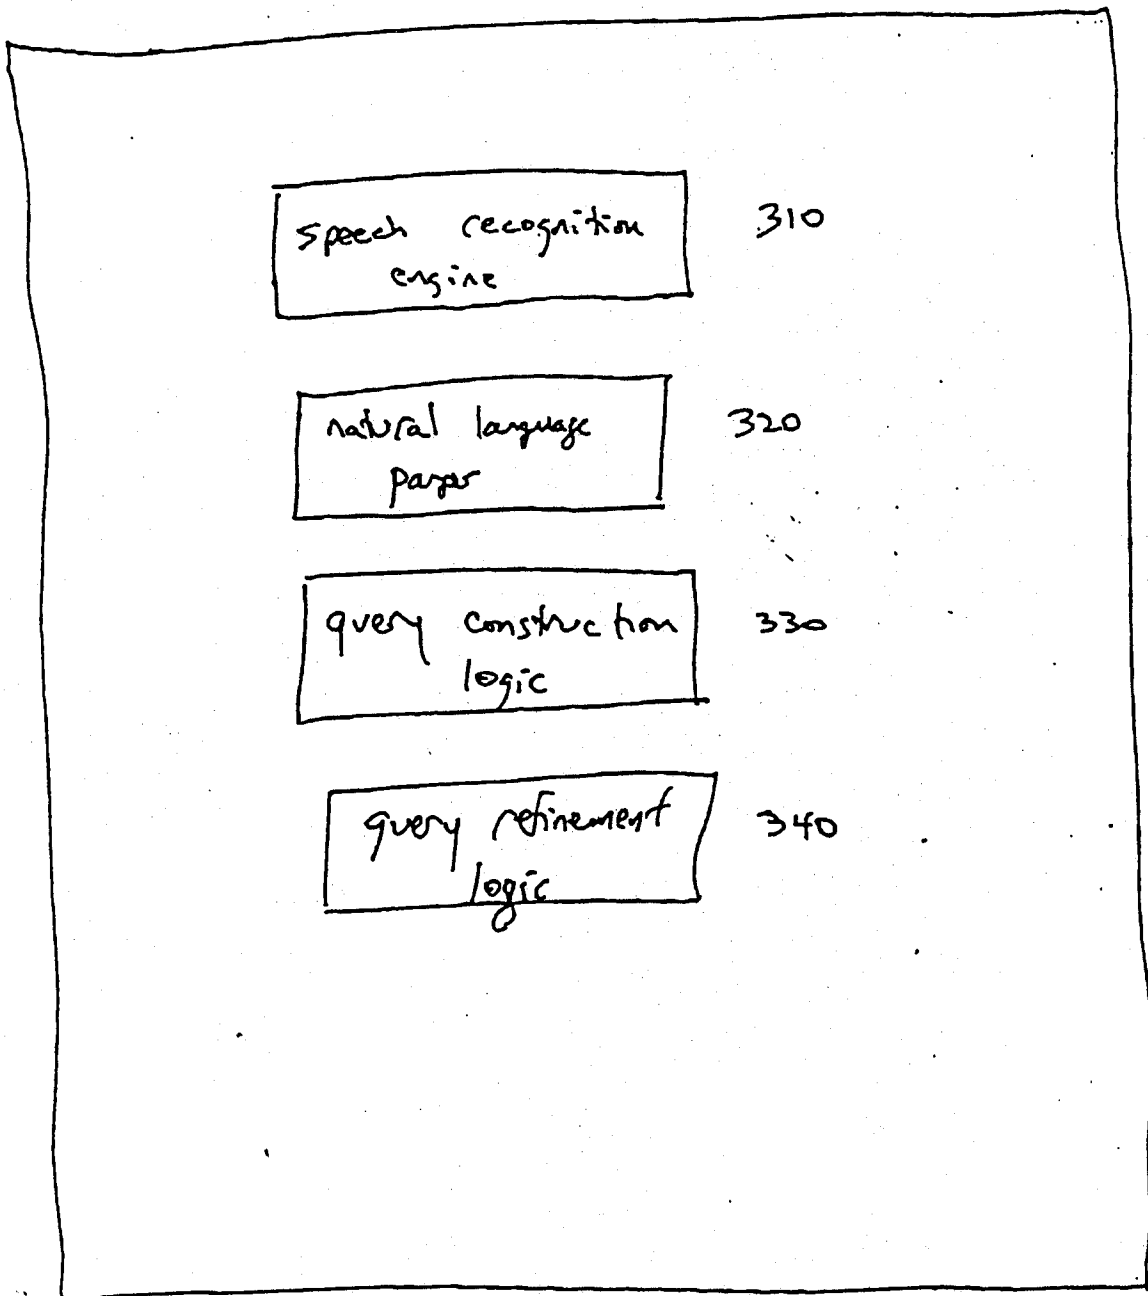 speech recognition
engine
310
natural language
parser
320
query construction
logic
330
query refinement
logic
340